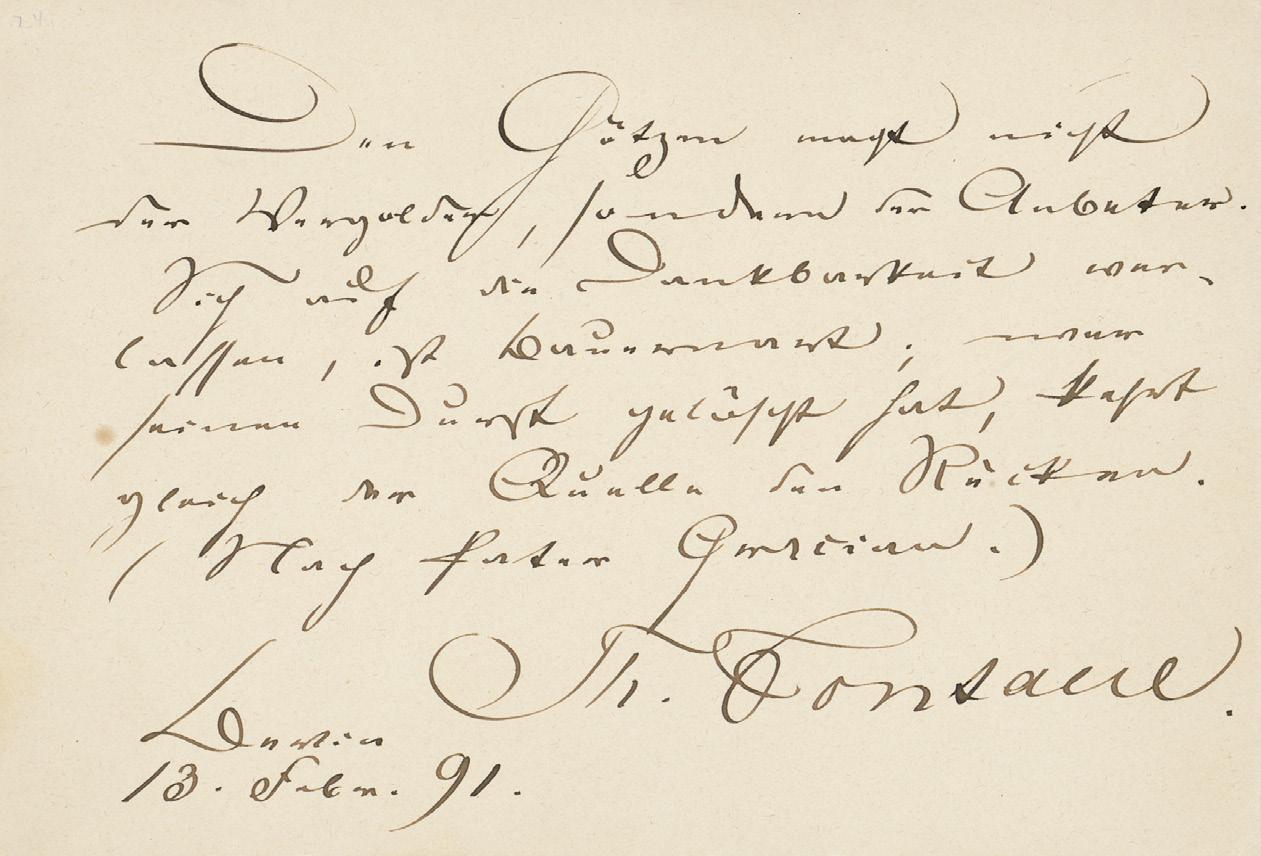 Den Götzen macht nicht
der Vergolder, sondern der Anbeter.
Sich auf die Dankbarkeit ver-
lassen, ist Bauernart; wer
seinen Durst gelöscht hat, kehrt
gleich der Quelle den Rücken.
(Nach Pater Gracian.)
Th. Fontane.
Berlin
13. Febr. 91.